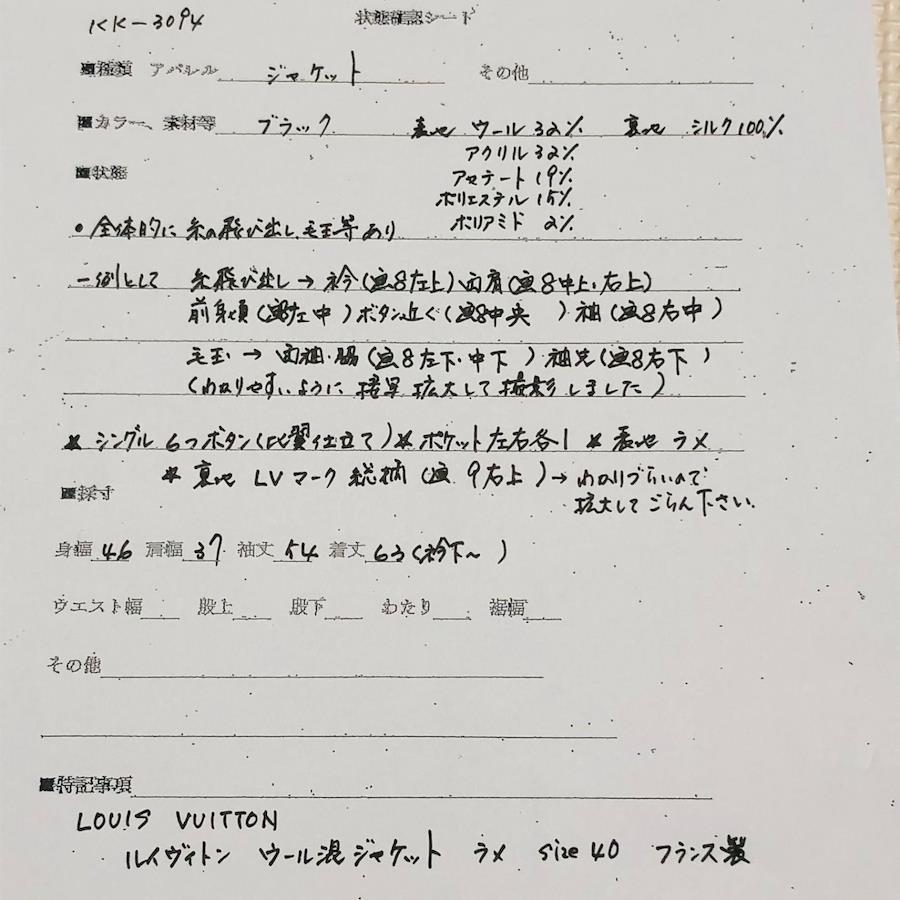 KK-3094
状態確認シート
■種類 アパレル ジャケット その他
■カラー、素材等 ブラック 表地 ウール32% 裏地 シルク100%
アクリル32%
アセテート19%
■状態
ポリエステル15%
ポリアミド 2%
・全体的に糸の飛び出し、毛玉等あり
一例として 糸飛び出し→衿(画8左上)両肩(画8中上・右上)
前身頃(画8左中)ボタン近く(画8中央)袖(画8右中)
毛玉→両袖・脇(画8左下・中下)袖先(画8右下)
(わかりやすいように 拡大して撮影しました)
* シングル 6つボタン(比翼仕立て)* ポケット左右各1 * 表地 ラメ
* 裏地 LVマーク 総柄(画9右上)→わかりづらいので
■採寸
拡大してごらん下さい.
身幅 46 肩幅 37 袖丈 54 着丈 63(衿下~)
ウエスト幅 股上 股下 わたり 裾幅
その他
■特記事項
LOUIS VUITTON
ルイヴィトン ウール混ジャケット ラメ size 40 フランス製